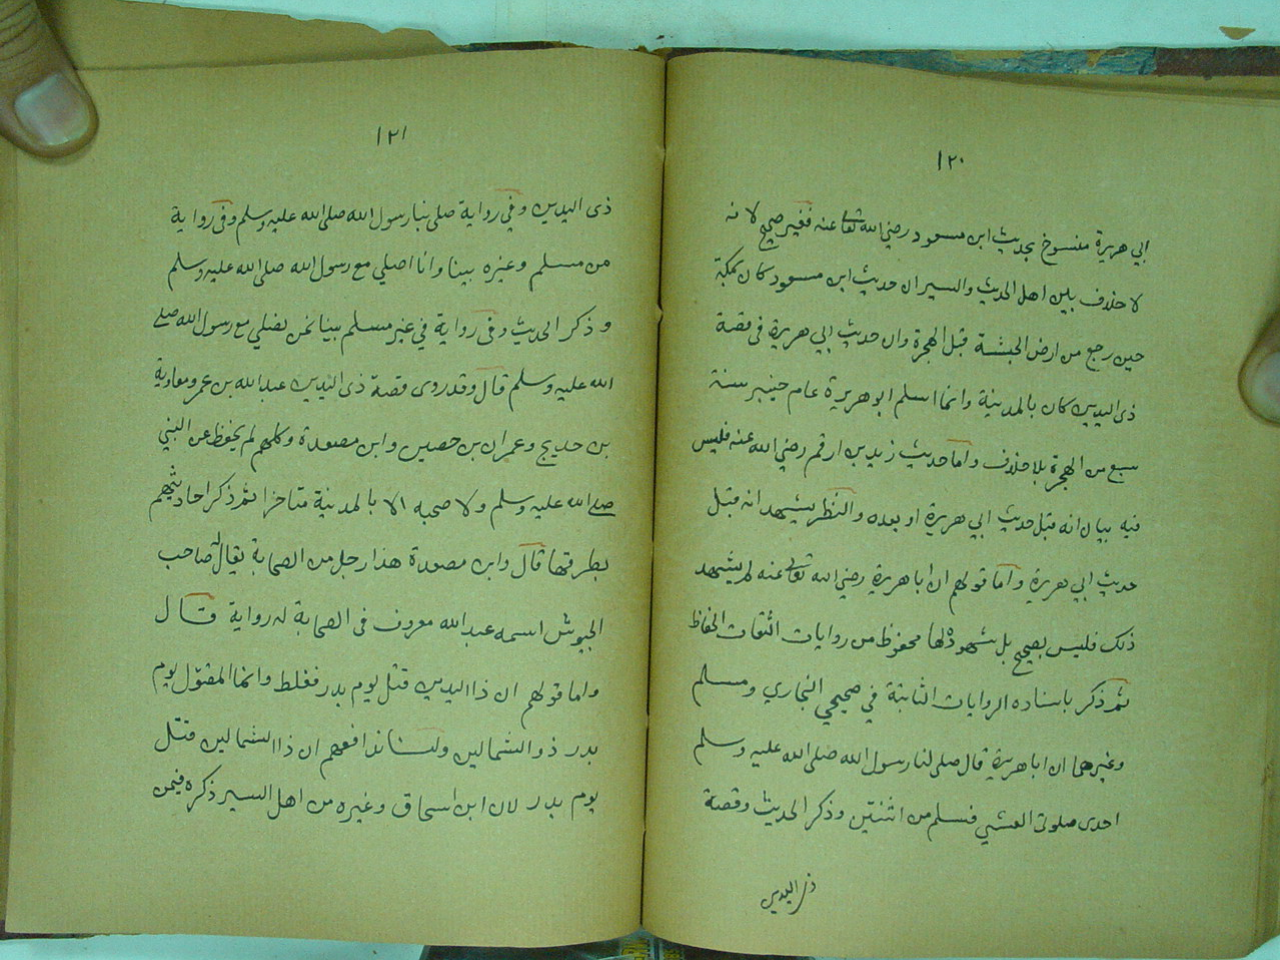 ١٢٠
ابي هريرة منسوخ بحديث ابن مسعود رضي الله تعالى عنه فغير صحيح لانه
لا خلاف بين اهل الحديث والسير ان حديث ابن مسعود كان بمكة
حين رجع من ارض الحبشة قبل الهجرة وان حديث ابي هريرة في قصة
ذى اليدين كان بالمدينة وانما اسلم ابو هريرة عام خيبر سنة
سبع من الهجرة بلا خلاف واما حديث زيد بن ارقم رضي الله عنه فليس
فيه بيان انه قبل حديث ابي هريرة او بعده والنظر يشهد انه قبل
حديث ابي هريرة واما قولهم ان ابا هريرة رضي الله تعالى عنه لم يشهد
ذلك فليس بصحيح بل شهوده لها محفوظ من روايات الثقات الحفاظ
ثم ذكر باسناده الروايات الثابتة في صحيحي البخاري ومسلم
وغيرهما ان ابا هريرة قال صلى لنا رسول الله صلى الله عليه وسلم
احدى صلوتى العشي فسلم من اثنتين وذكر الحديث وقصة
ذى اليدين
١٢١
ذى اليدين وفي رواية صلى بنا رسول الله صلى الله عليه وسلم وفى رواية
من مسلم وغيره بينا وانا اصلي مع رسول الله صلى الله عليه وسلم
وذكر الحديث وفى رواية في غير مسلم بينا نحن نصلي مع رسول الله صلى
الله عليه وسلم قال وقد روى قصة ذى اليدين عبد الله بن عمر ومعاوية
بن حديج وعمران بن حصين وابن مصعدة وكلهم لم يحفظ عن النبي
صلى الله عليه وسلم ولا صحبه الا بالمدينة متاخرا ثم ذكر احاديثهم
بطرقها قال وابن مصعدة هذا رجل من الصحابة يقال له صاحب
الجيوش اسمه عبد الله معروف فى الصحابة له رواية قال
واما قولهم ان ذا اليدين قتل يوم بدر فغلط وانما المقتول يوم
بدر ذو الشمالين ولسنا ندافعهم ان ذا الشمالين قتل
يوم بدر لان ابن اسحاق وغيره من اهل السير ذكره فيمن